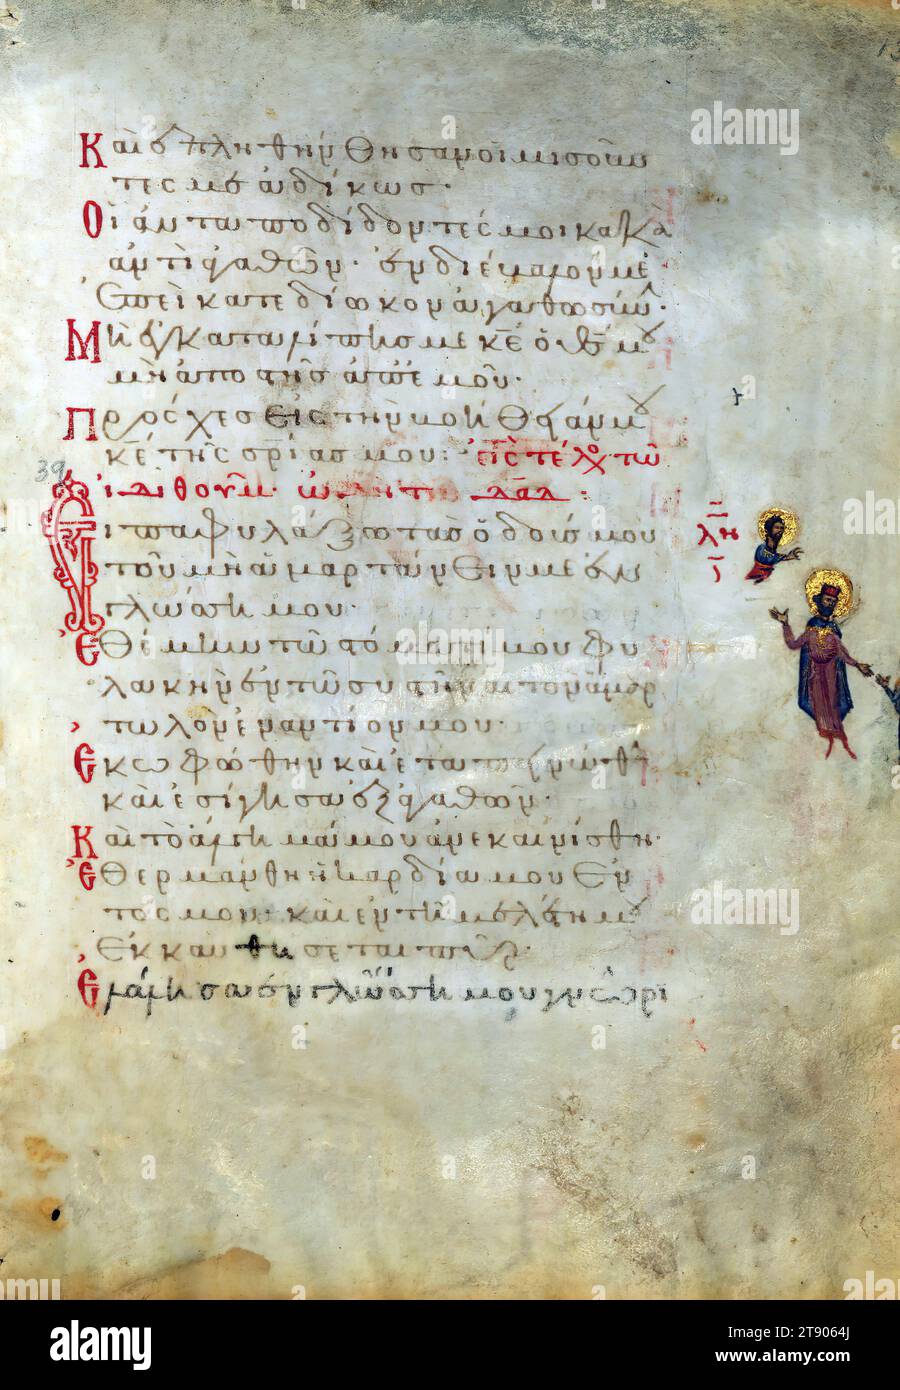 Καὶ ἐπληθύνθησαν οἱ μισοῦν
τές με ἀδίκως·
Οἱ ἀνταποδιδόντές μοι κακὰ
ἀντὶ ἀγαθῶν· ἐνδιέβαλλόν με
Ἐπεὶ κατεδίωκον ἀγαθωσύν·
Μὴ ἐγκαταλίπῃς με κε ὁ θς μου
μὴ ἀποστῇς ἀπ' ἐμοῦ·
Πρόσχες εἰς τὴν βοήθειάν μου
κε τῆς σριας μου: εἰς τέλος τῶ
ἰδιθοῦμ ὠδὴ τῶ δαδ:
39
Εἶπα φυλάξω τὰς ὁδούς μου
τοῦ μὴ ἁμαρτάνειν με ἐν
γλώσση μου·
Ἐθέμην τῶ στόματί μου φυ
λακὴν ἐν τῶ συστῆναι τὸν ἁμαρ
τωλὸν ἐναντίον μου·
Ἐκωφώθην καὶ ἐταπεινώθην
καὶ ἐσίγησα ἐξ ἀγαθῶν·
Καὶ τὸ ἄλγημά μου ἀνεκαινίσθη·
Ἐθερμάνθη ἡ καρδία μου ἐν
τός μου· καὶ ἐν τῆ μελέτη μου
Ἐκκαυθήσεται πῦρ·
Ἐλάλησα ἐν γλώσση μου γνώρι
alamy
Image ID: 2T9064J
www.alamy.com